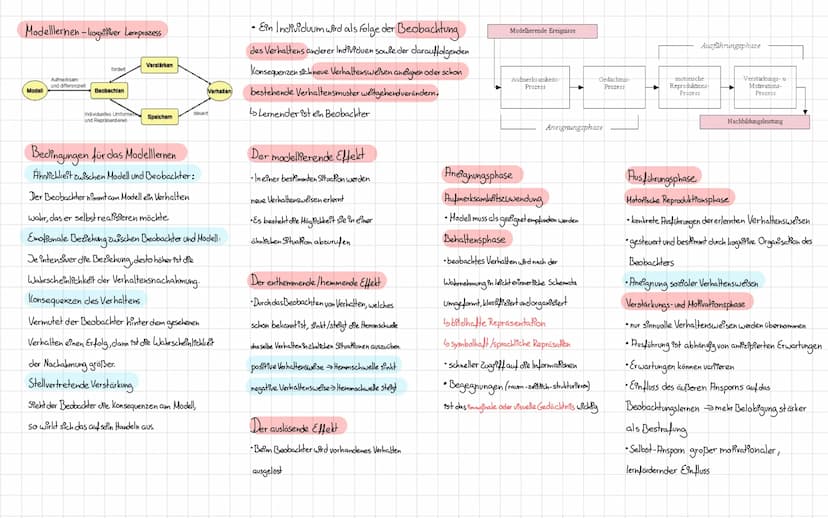 Modelllernen - kognitiver Lernprozess
Verstärken
fördert
Aufmerksam
und differenziert
Modell
Beobachten
Verhalten
Individuelles Umformen
und Repräsentieren
Speichern
steuert
• Ein Individuum wird als Folge der Beobachtung
des Verhaltens anderer Individuen sowie der darauffolgenden
Konsequenzen sich neue Verhaltensweisen aneignen oder schon
bestehende Verhaltensmuster weitgehend verändern.
↳ Lernender ist ein Beobachter
Modellierende Ereignisse
Ausführungsphase
Aufmerksamkeits-
Prozess
Gedächtnis-
Prozess
motorische
Reproduktions-
Prozess
Verstärkungs- u.
Motivations-
Prozess
Aneignungsphase
Nachbildungsleistung
Bedingungen für das Modelllernen
Ähnlichkeit zwischen Modell und Beobachter:
Der Beobachter nimmt am Modell ein Verhalten
wahr, das er selbst realisieren möchte.
Emotionale Beziehung zwischen Beobachter und Modell:
Je intensiver die Beziehung, desto höher ist die
Wahrscheinlichkeit der Verhaltensnachahmung.
Konsequenzen des Verhaltens
Vermutet der Beobachter hinter dem gesehenen
Verhalten einen Erfolg, dann ist die Wahrscheinlichkeit
der Nachahmung größer.
Stellvertretende Verstärkung
Sieht der Beobachter die Konsequenzen am Modell,
so wirkt sich das auf sein Handeln aus.
Der modellierende Effekt
• In einer bestimmten Situation werden
neue Verhaltensweisen erlernt
• Es besteht die Möglichkeit sie in einer
ähnlichen Situation abzurufen
Der enthemmende/hemmende Effekt
• Durch das Beobachten von Verhalten, welches
schon bekannt ist, sinkt/steigt die Hemmschwelle
dasselbe Verhalten in ähnlichen Situationen auszuüben
positive Verhaltensweise → Hemmschwelle sinkt
negative Verhaltensweise → Hemmschwelle steigt
Der auslösende Effekt
• Beim Beobachter wird vorhandenes Verhalten
ausgelöst
Aneignungsphase
Aufmerksamkeitszuwendung
• Modell muss als geeignet empfunden werden
Behaltensphase
• beobachtetes Verhalten wird nach der
Wahrnehmung in leicht erinnerliche Schemata
umgeformt, klassifiziert und organisiert
↳ bildhafte Repräsentation
↳ symbolhaft/sprachliche Repräsation
• schneller Zugriff auf die Informationen
• Begegnungen (raum-zeitlich-strukturieren)
ist das imaginale oder visuelle Gedächtnis wichtig
Ausführungsphase
Motorische Reproduktionsphase
• konkrete Ausführungen der erlernten Verhaltensweisen
• gesteuert und bestimmt durch kognitive Organisation des
Beobachters
• Aneignung sozialer Verhaltensweisen
Verstärkungs- und Motivationsphase
• nur sinnvolle Verhaltensweisen werden übernommen
• Ausführung ist abhängig von antizipierten Erwartungen
• Erwartungen können variieren
• Einfluss des äußeren Ansporns auf das
Beobachtungslernen → mehr Belobigung stärker
als Bestrafung
• Selbst-Ansporn großer motivationaler,
lernfördernder Einfluss